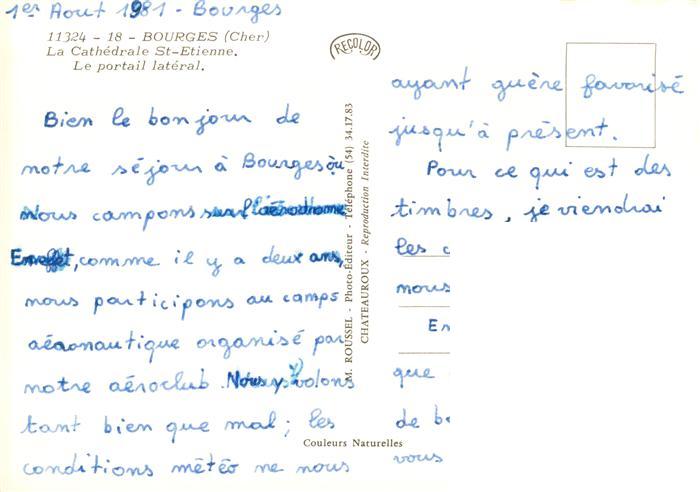 1er Aout 1981 - Bourges
11324 - 18 - BOURGES (Cher)
La Cathédrale St-Etienne.
Le portail latéral.
Bien le bonjour de
notre séjour à Bourges où
Nous campons sur l'aérodrome
En effet, comme il y a deux ans,
nous participons au camps
aéronautique organisé par
notre aéroclub. Nous y volons
tant bien que mal ; les
conditions météo ne nous
RECOLOR
M. ROUSSEL - Photo-Éditeur - Téléphone (54) 34.17.83
CHATEAUROUX - Reproduction Interdite
Couleurs Naturelles
ayant guère favorisé
jusqu'à présent.
Pour ce qui est des
timbres, je viendrai
les
nous
En
que
de
vous